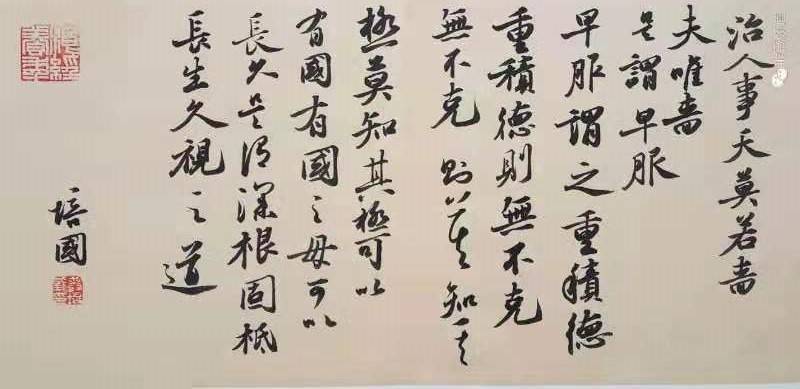 治人事天莫若嗇
夫唯嗇
是謂早服
早服謂之重積德
重積德則無不克
無不克則莫知其
極莫知其極可以
有國有國之母可以
長久是謂深根固柢
長生久視之道
培國